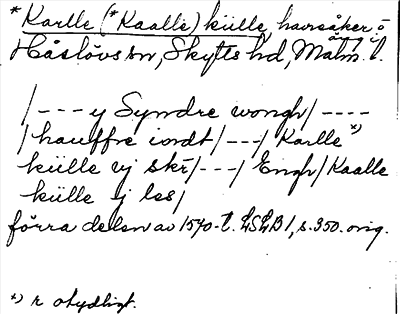 *Karlle (*Kaalle) külle, havreåker o.
äng i
Håslövs sn, Skytts hd, Malm. l.
/--- y Syndre wongh/----
/hauffre iordt/---/ Karlle *)
külle vj skr/---/ Engh/Kaalle
külle ij les/
förra delen av 1570-t. LSLB 1, s. 350. orig.
*) r otydligt.